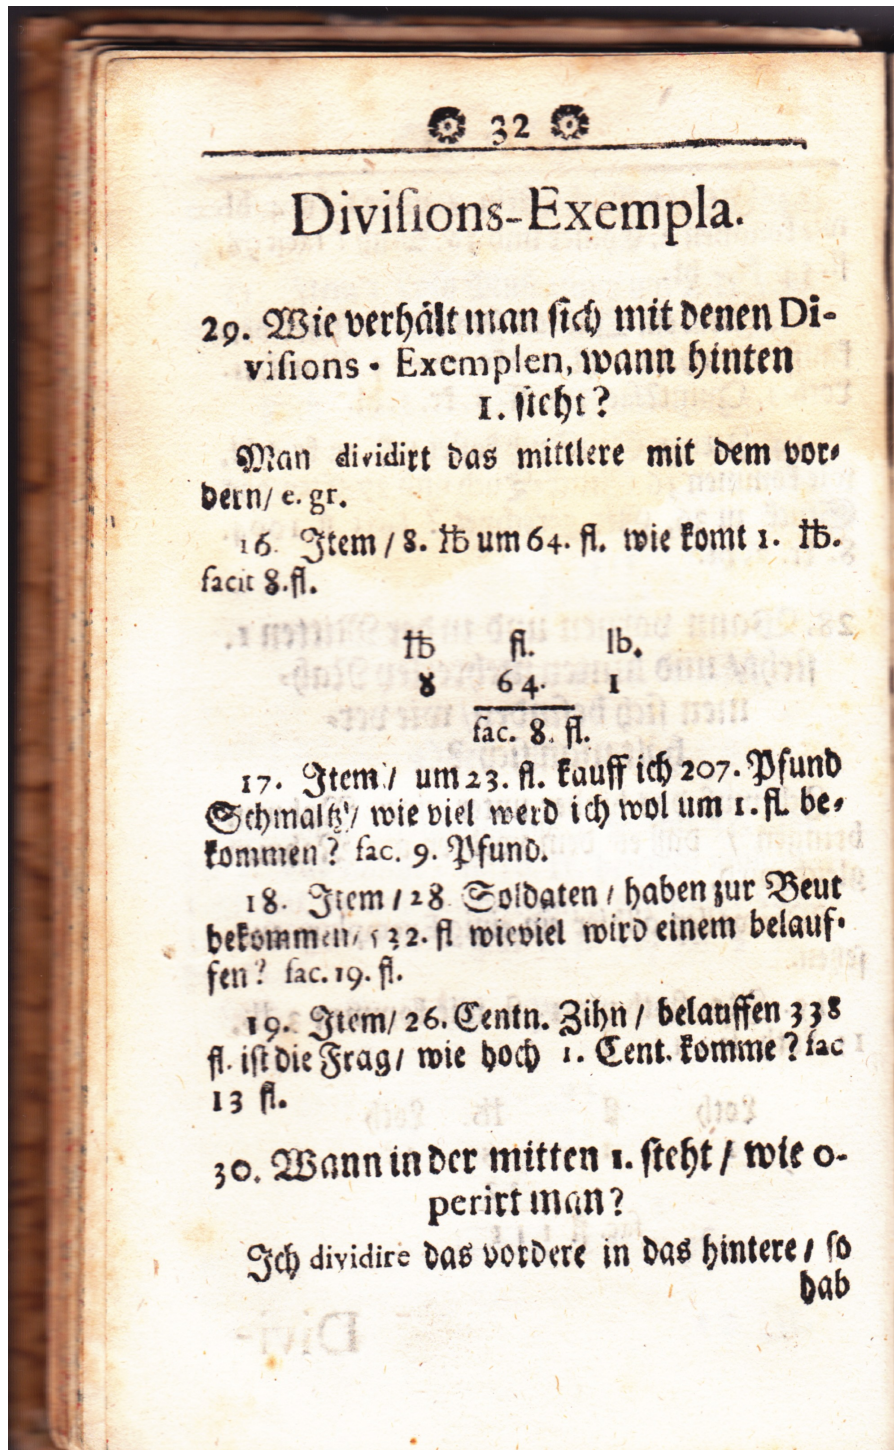 32
Diviſions-Exempla.
29. Wie verhält man ſich mit denen Di-
viſions - Exemplen, wann hinten
1. ſteht?
Man dividirt das mittlere mit dem vor-
dern/ e. gr.
16. Item / 8. ℔ um 64. fl. wie komt 1. ℔.
facit 8. fl.
℔ fl. lb.
8 64. 1
fac. 8. fl.
17. Item / um 23. fl. kauff ich 207. Pfund
Schmaltz / wie viel werd ich wol um 1. fl. be-
kommen? fac. 9. Pfund.
18. Item / 28 Soldaten / haben zur Beut
bekommen/ 532. fl wieviel wird einem belauf-
fen? fac. 19. fl.
19. Item/ 26. Centn. Zihn / belauffen 338
fl. iſt die Frag/ wie hoch 1. Cent. komme? fac
13 fl.
30. Wann in der mitten 1. ſteht / wie o-
perirt man?
Ich dividire das vordere in das hintere / ſo
hab